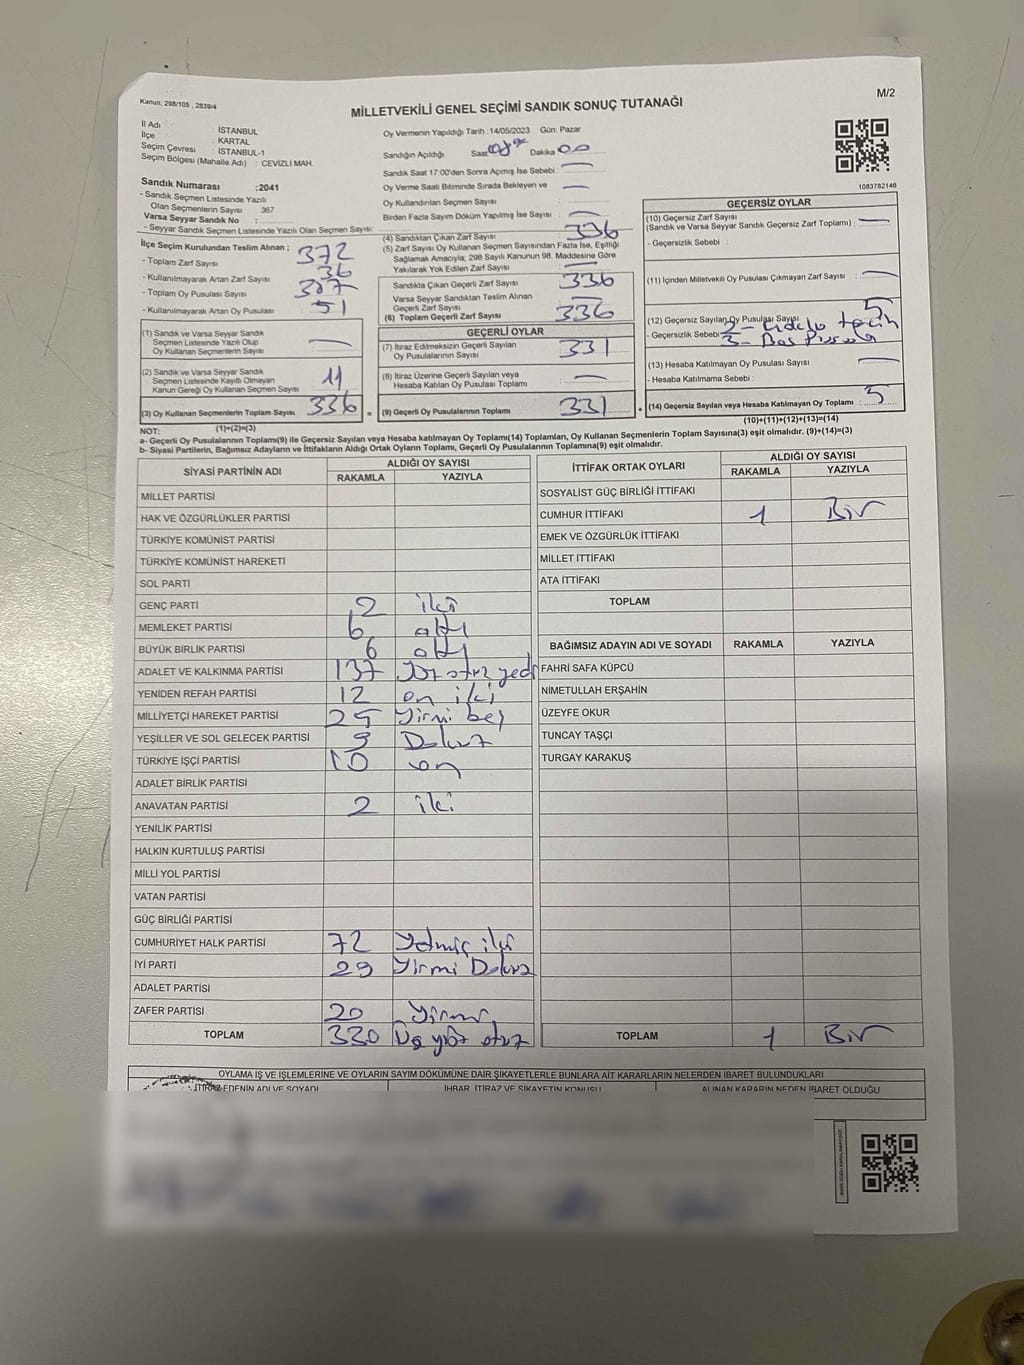 Kanun: 298/105 , 2839/4
M/2
MİLLETVEKİLİ GENEL SEÇİMİ SANDIK SONUÇ TUTANAĞI
İl Adı : İSTANBUL
İlçe : KARTAL
Seçim Çevresi : İSTANBUL-1
Seçim Bölgesi (Mahalle Adı) : CEVİZLİ MAH.
Sandık Numarası :2041
- Sandık Seçmen Listesinde Yazılı
Olan Seçmenlerin Sayısı 367
Varsa Seyyar Sandık No :
- Seyyar Sandık Seçmen Listesinde Yazılı Olan Seçmen Sayısı:
Oy Vermenin Yapıldığı Tarih :14/05/2023 Gün: Pazar
Sandığın Açıldığı Saat Dakika 00
Sandık Saat 17:00'den Sonra Açılmış İse Sebebi : —
Oy Verme Saati Bitiminde Sırada Bekleyen ve
Oy Kullandırılan Seçmen Sayısı —
Birden Fazla Sayım Döküm Yapılmış İse Sayısı : —
1083782146
İlçe Seçim Kurulundan Teslim Alınan ;
- Toplam Zarf Sayısı : 372
- Kullanılmayarak Artan Zarf Sayısı : 36
- Toplam Oy Pusulası Sayısı : 387
- Kullanılmayarak Artan Oy Pusulası : 51
(1) Sandık ve Varsa Seyyar Sandık
Seçmen Listesinde Yazılı Olup
Oy Kullanan Seçmenlerin Sayısı —
(2) Sandık ve Varsa Seyyar Sandık
Seçmen Listesinde Kayıtlı Olmayan
Kanun Gereği Oy Kullanan Seçmen Sayısı : 11
(3) Oy Kullanan Seçmenlerin Toplam Sayısı : 336 =
(1)+(2)=(3)
(4) Sandıktan Çıkan Zarf Sayısı : 336
(5) Zarf Sayısı Oy Kullanan Seçmen Sayısından Fazla İse, Eşitliği
Sağlamak Amacıyla; 298 Sayılı Kanunun 98. Maddesine Göre
Yakılarak Yok Edilen Zarf Sayısı : —
Sandıkta Çıkan Geçerli Zarf Sayısı : 336
Varsa Seyyar Sandıktan Teslim Alınan
Geçerli Zarf Sayısı : —
(6) Toplam Geçerli Zarf Sayısı : 336
GEÇERLİ OYLAR
(7) İtiraz Edilmeksizin Geçerli Sayılan
Oy Pusulalarının Sayısı : 331
(8) İtiraz Üzerine Geçerli Sayılan veya
Hesaba Katılan Oy Pusulası Toplamı : —
(9) Geçerli Oy Pusulalarının Toplamı : 331 +
GEÇERSİZ OYLAR
(10) Geçersiz Zarf Sayısı
(Sandık ve Varsa Seyyar Sandık Geçersiz Zarf Toplamı) : —
- Geçersizlik Sebebi :
(11) İçinden Milletvekili Oy Pusulası Çıkmayan Zarf Sayısı : —
(12) Geçersiz Sayılan Oy Pusulası Sayısı : 5
- Geçersizlik Sebebi : 2 -
3 - Boş
(13) Hesaba Katılmayan Oy Pusulası Sayısı : —
- Hesaba Katılmama Sebebi :
(14) Geçersiz Sayılan veya Hesaba Katılmayan Oy Toplamı : 5
(10)+(11)+(12)+(13)=(14)
NOT:
a- Geçerli Oy Pusulalarının Toplamı(9) ile Geçersiz Sayılan veya Hesaba katılmayan Oy Toplamı(14) Toplamları, Oy Kullanan Seçmenlerin Toplam Sayısına(3) eşit olmalıdır. (9)+(14)=(3)
b- Siyasi Partilerin, Bağımsız Adayların ve İttifakların Aldığı Ortak Oyların Toplamı, Geçerli Oy Pusulalarının Toplamına(9) eşit olmalıdır.
SİYASİ PARTİNİN ADI ALDIĞI OY SAYISI
RAKAMLA YAZIYLA
MİLLET PARTİSİ
HAK VE ÖZGÜRLÜKLER PARTİSİ
TÜRKİYE KOMÜNİST PARTİSİ
TÜRKİYE KOMÜNİST HAREKETİ
SOL PARTİ
GENÇ PARTİ 2 iki
MEMLEKET PARTİSİ 6 altı
BÜYÜK BİRLİK PARTİSİ 6 altı
ADALET VE KALKINMA PARTİSİ 137 Yüz otuz yedi
YENİDEN REFAH PARTİSİ 12 on iki
MİLLİYETÇİ HAREKET PARTİSİ 25 Yirmi beş
YEŞİLLER VE SOL GELECEK PARTİSİ 9 Dokuz
TÜRKİYE İŞÇİ PARTİSİ 10 on
ADALET BİRLİK PARTİSİ
ANAVATAN PARTİSİ 2 iki
YENİLİK PARTİSİ
HALKIN KURTULUŞ PARTİSİ
MİLLİ YOL PARTİSİ
VATAN PARTİSİ
GÜÇ BİRLİĞİ PARTİSİ
CUMHURİYET HALK PARTİSİ 72 Yetmiş iki
İYİ PARTİ 29 Yirmi Dokuz
ADALET PARTİSİ
ZAFER PARTİSİ 20 Yirmi
TOPLAM 330 Üç yüz otuz
İTTİFAK ORTAK OYLARI ALDIĞI OY SAYISI
RAKAMLA YAZIYLA
SOSYALİST GÜÇ BİRLİĞİ İTTİFAKI
CUMHUR İTTİFAKI 1 Bir
EMEK VE ÖZGÜRLÜK İTTİFAKI
MİLLET İTTİFAKI
ATA İTTİFAKI
TOPLAM
BAĞIMSIZ ADAYIN ADI VE SOYADI RAKAMLA YAZIYLA
FAHRİ SAFA KÜPCÜ
NİMETULLAH ERŞAHİN
ÜZEYFE OKUR
TUNCAY TAŞÇI
TURGAY KARAKUŞ
TOPLAM 1 Bir
OYLAMA İŞ VE İŞLEMLERİNE VE OYLARIN SAYIM DÖKÜMÜNE DAİR ŞİKAYETLERLE BUNLARA AİT KARARLARIN NELERDEN İBARET BULUNDUKLARI
İTİRAZ EDENİN ADI VE SOYADI İHBAR, İTİRAZ VE ŞİKAYETİN KONUSU ALINAN KARARIN NEDEN İBARET OLDUĞU